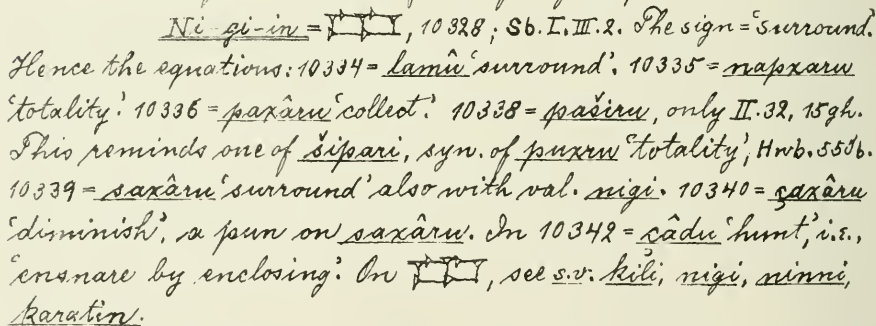 Ni-gi-in = 𒆸𒆸, 10328; Sb. I. III. 2. The sign = 'surround.'
Hence the equations: 10334 = lamû 'surround'. 10335 = napxaru
'totality.' 10336 = paxâru 'collect.' 10338 = paširu, only II. 32, 15gh.
This reminds one of šipari, syn. of puxru 'totality', Hwb. 555b.
10339 = saxâru 'surround' also with val. nigi. 10340 = çaxâru
'diminish', a pun on saxâru. In 10342 = çâdu 'hunt,' i.e.,
'ensnare by enclosing.' On 𒆸𒆸, see s.v. kili, nigi, ninni,
karatin.